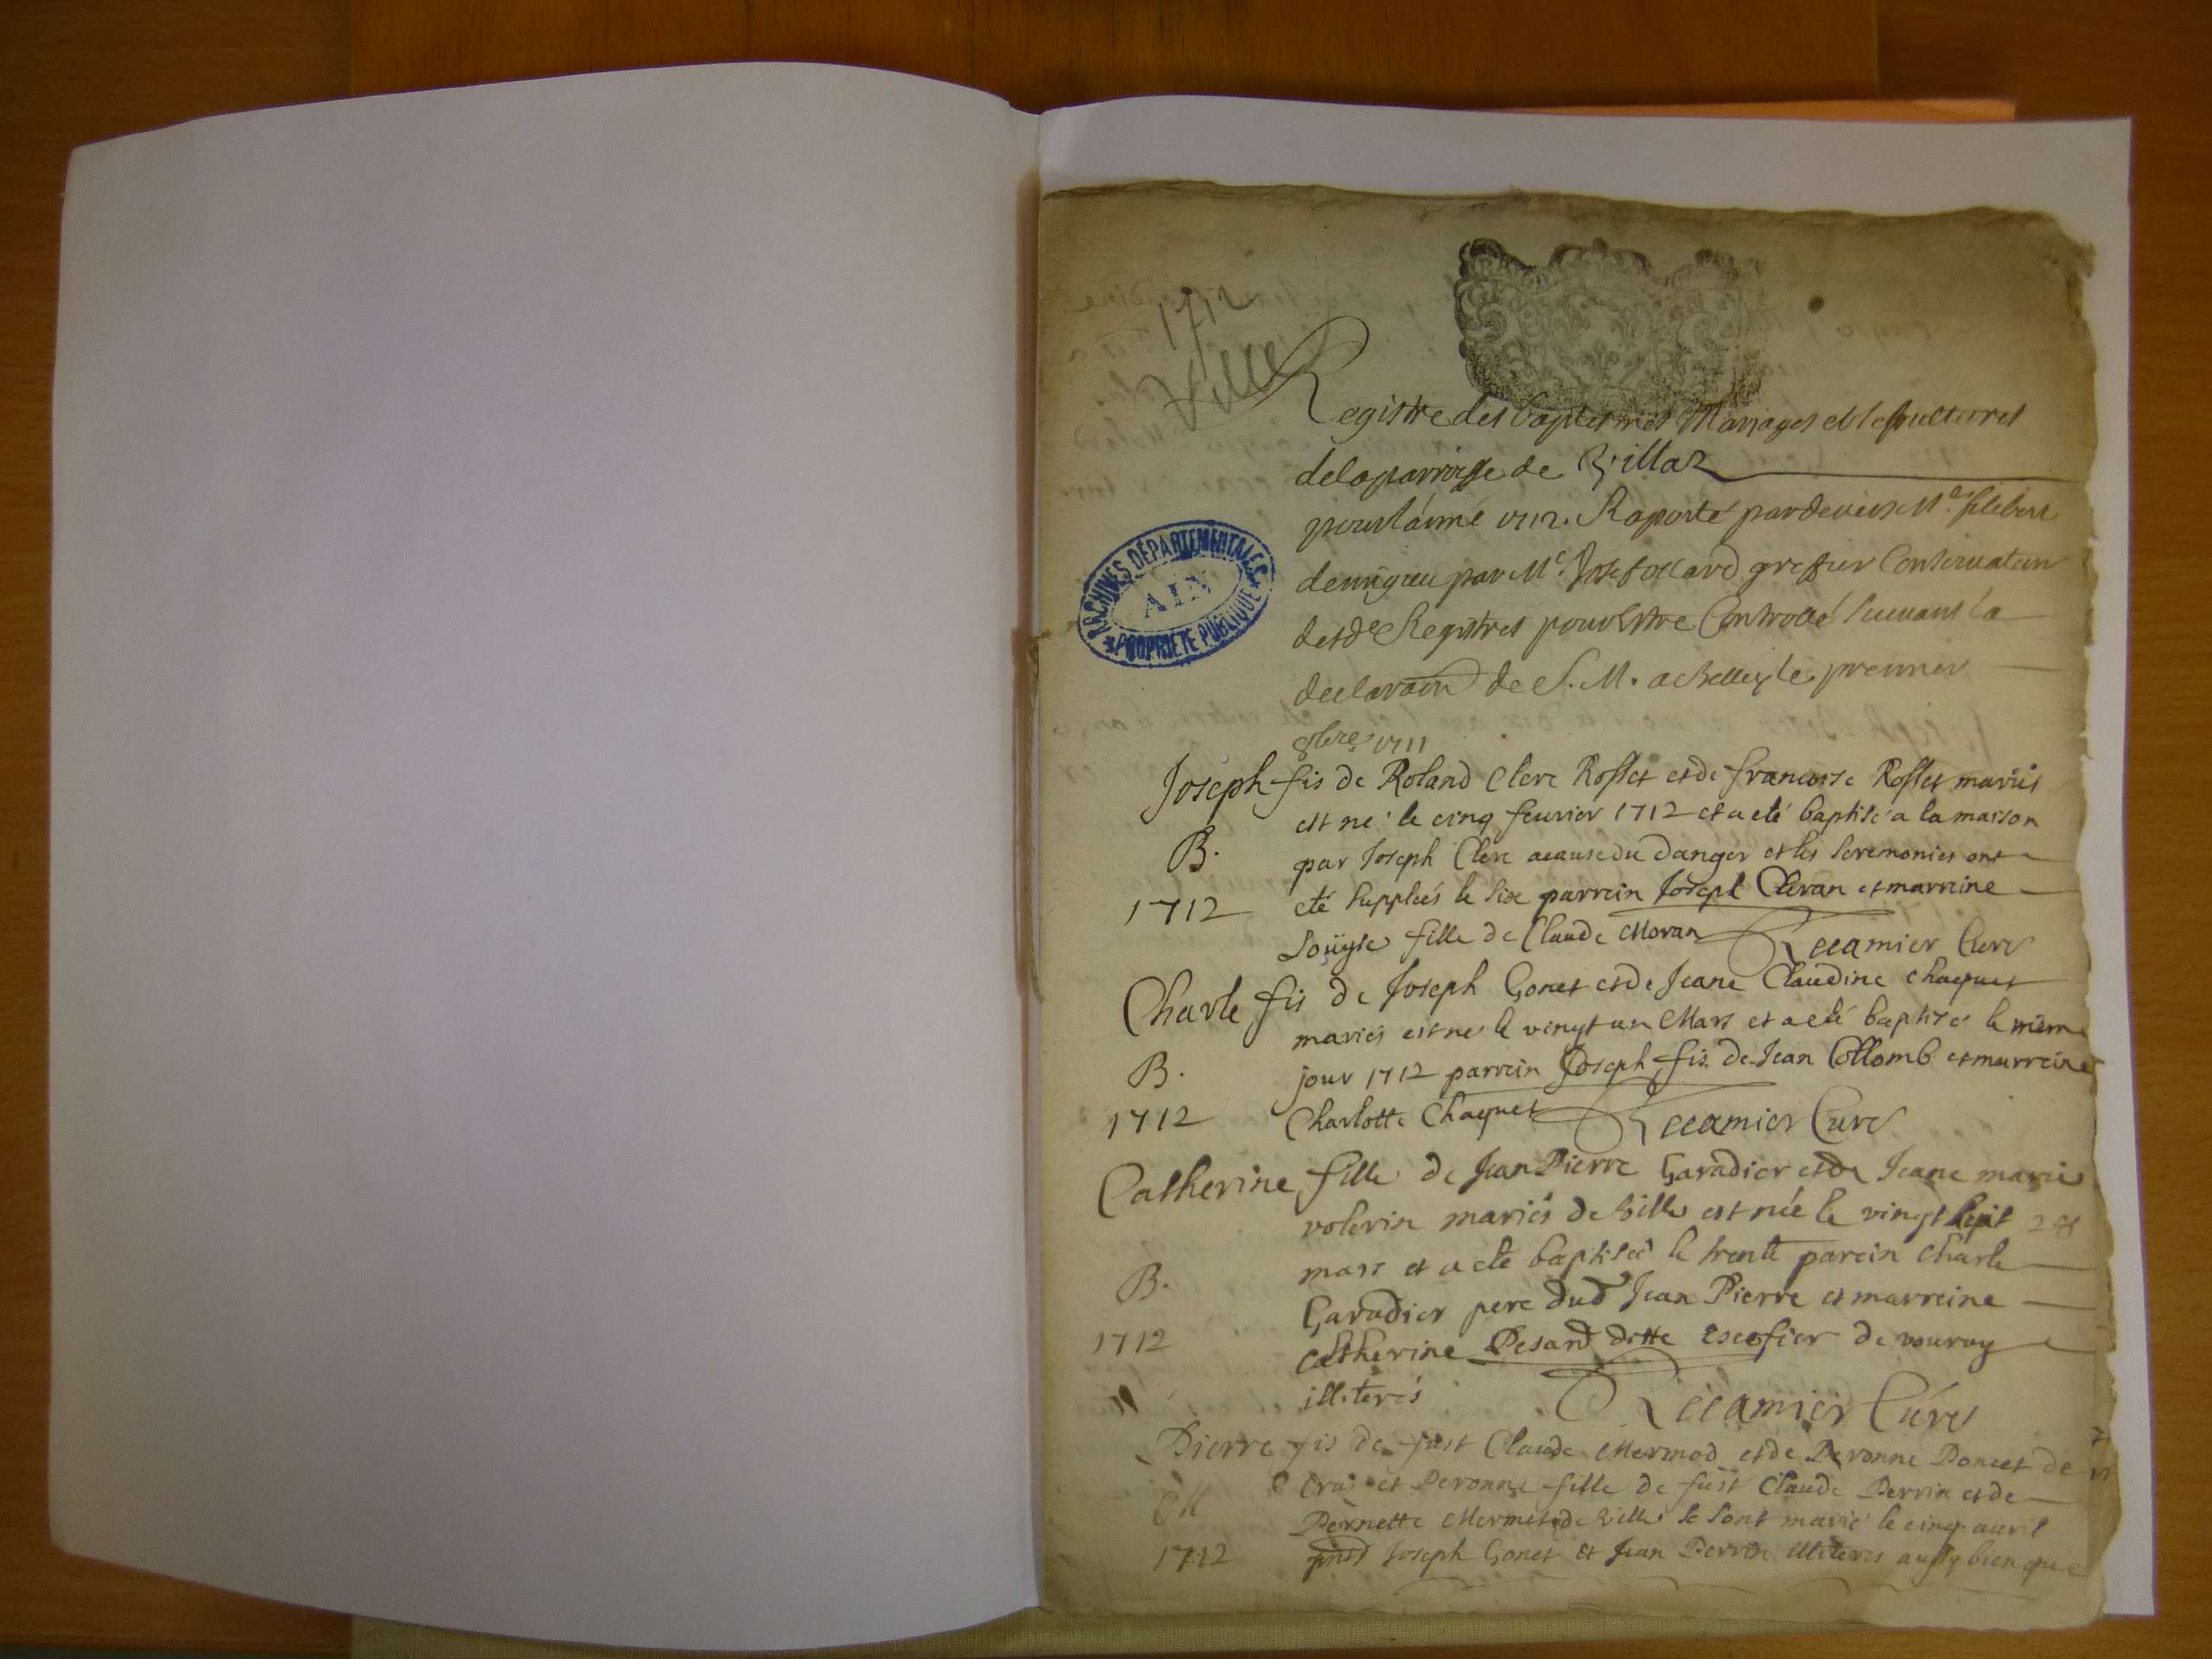 1712
Ville
Registre des baptesmes Mariages et sepultures
de la parroisse de Villaz
pour l'anné 1712. Raporté pardevers Me.
par Me. greffier Conservateur
desd. Registres pour Estre Controllé suivant la
declaraon de S. M. a Belley le premier
8bre 1711
ARCHIVES DÉPARTEMENTALES
AIN
*PROPRIETE PUBLIQUE*
Joseph fis de Roland Clerc Rosset et de francoise Rosset mariés
est ne le cinq feurier 1712 et a eté baptisé a la maison
B. par Joseph Clerc a cause du danger et les seremonies ont
1712 eté supplées le six parrein Joseph et marreine
Loüyse fille de Claude Moran Recamier Curé
Charle fis de Joseph Gonet et de Jeane Claudine Chaquet
mariés est ne le vingt un Mars et a eté baptisé le mem
B. jour 1712 parrein Joseph fis de Jean Collomb et marreine
1712 Charlotte Chaquet Recamier Curé
Catherine fille de Jean Pierre Garadier et de Jeane marie
volerin mariés de Ville est née le vingt sept
B. mars et a eté baptisée le trente parein Charle
Garadier pere dud Jean Pierre et marreine
1712 Catherine Pesand ditte escofier de vouray
illiterés Recamier Curé
Pierre fis de fust Claude Mermod et de Peronne Poncet de
M Cras et Peronne fille de fust Claude Perrin et de
Pernette Mermet de Ville se sont marié le cinq auril
1712 pnts Joseph Gonet et Jean Perrin illiteres aussy bien que